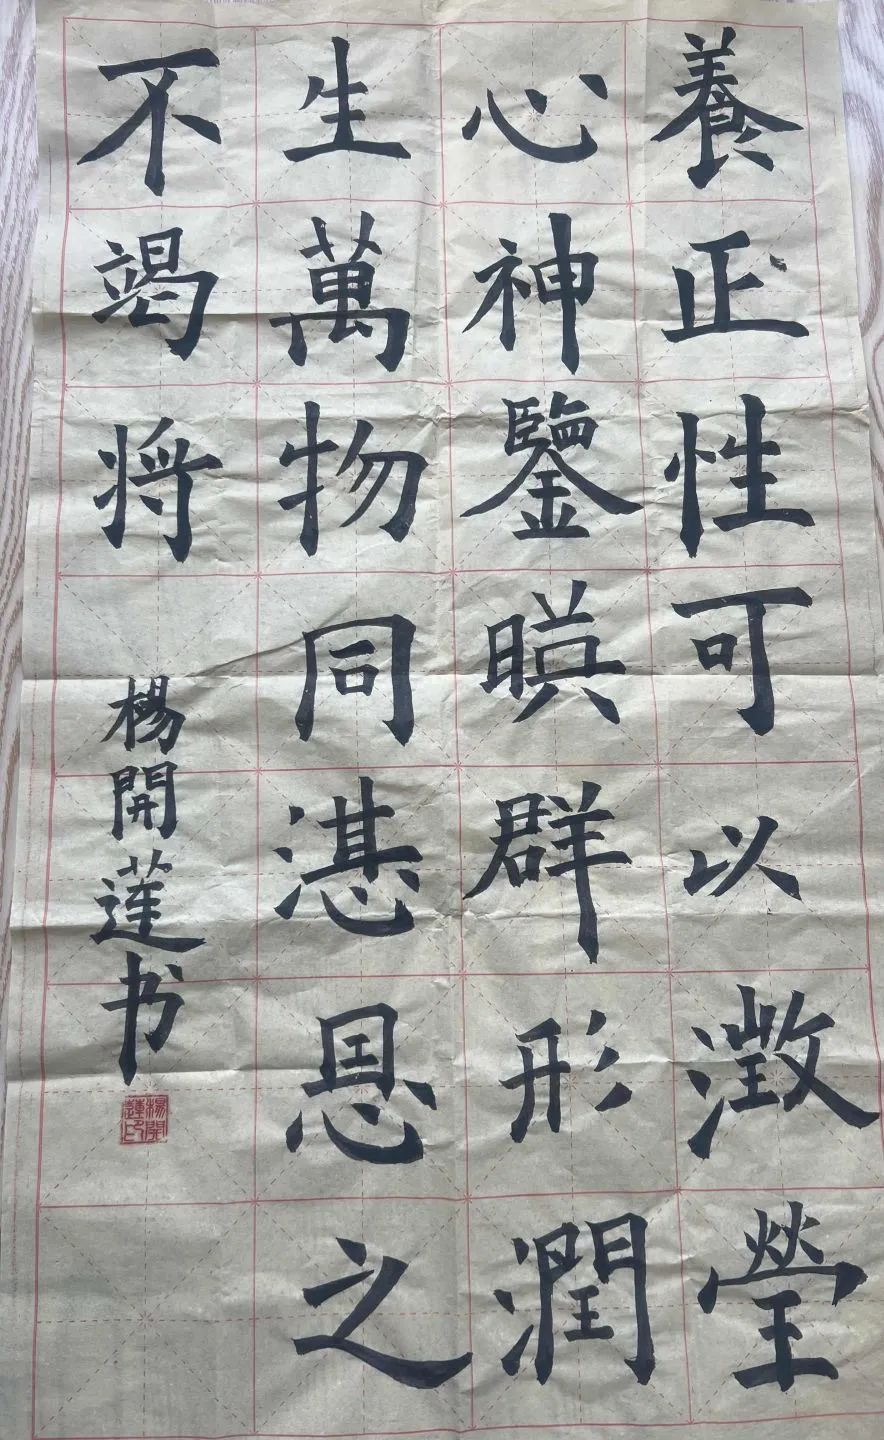 養正性可以澂瑩
心神鑒暎群形潤
生萬物同湛恩之
不竭将
楊開蓮书
楊開蓮印